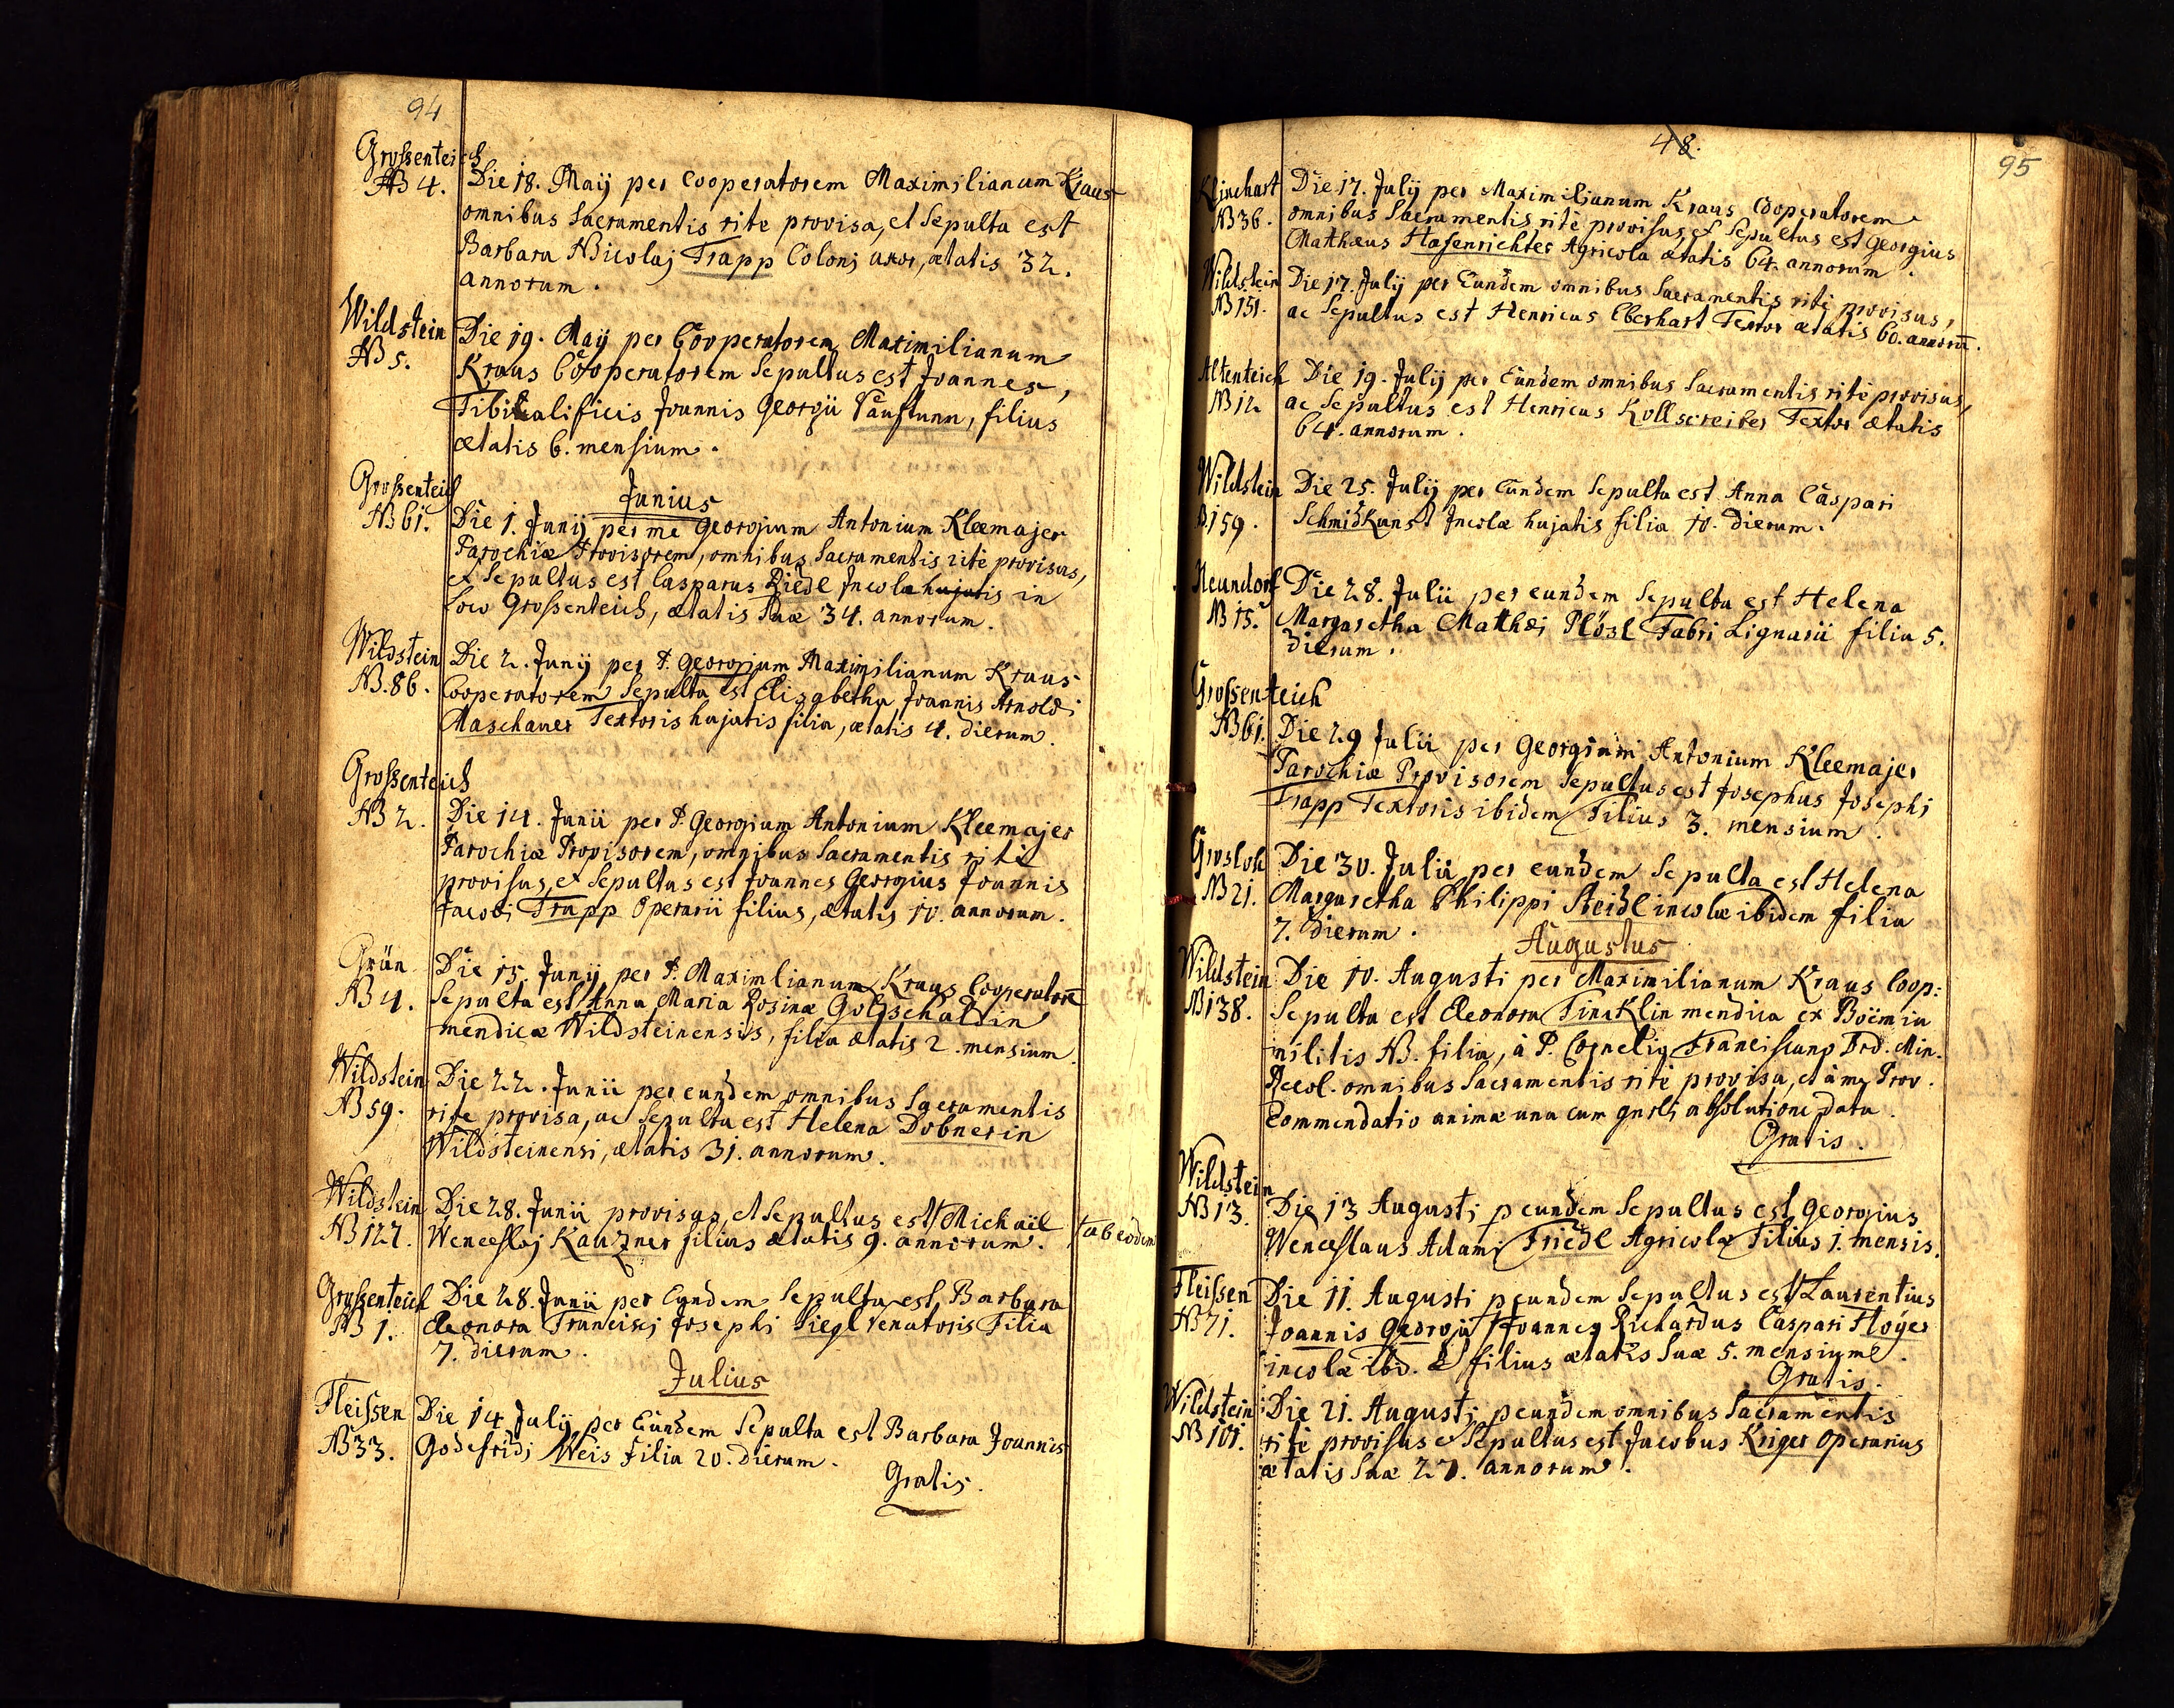 94
Grossenteich
NB 4.
Die 18. Maij per Cooperatorem Maximilianum Kraus
omnibus Sacramentis rite provisa, et Sepulta est
Barbara Nicolaj Trapp Colonj uxor, ætatis 32.
annorum.
Wildstein
NB 5.
Die 19. Maij per Cooperatorem Maximilianum
Kraus Cooperatorem Sepultus est Joannes,
Tibialificis Joannis Georgii, filius
ætatis 6. mensium.
Junius
Grossenteich
NB 61.
Die 1. Junij per me Georgium Antonium Kleemajer
Parochiæ Provisorem, omnibus Sacramentis ritè provisus,
et Sepultus est Casparus Riedl Incola hujatis in
loco Grossenteich, ætatis suæ 34. annorum.
Wildstein
NB. 86.
Die 2. Junij per P. Georgium Maximilianum Kraus
Cooperatorem Sepulta est Elisabetha Joannis Arnoldi
Maschauer Textoris hujatis filia, ætatis 4. dierum.
Grossenteich
NB 2.
Die 14. Junii per P. Georgium Antonium Kleemajer
Parochiæ Provisorem, omnibus Sacramentis ritè
provisus, et Sepultus est Joannes Georgius Joannis
Jacobi Trapp Operarii filius, ætatis 10. annorum.
Grün
NB 4.
Die 15. Junij per P. Maximlianum Kraus Cooperatorē
Sepulta est Anna Maria Rosinæ Golsschaldin
mendicæ Wildsteinensis, filia ætatis 2. mensium.
Wildstein
NB 59.
Die 22. Junii per eundem omnibus Sacramentis
rite provisa, ac Sepulta est Helena Dobnerin
Wildsteinensi, ætatis 31. annorum.
Wildstein
NB 127.
Die 28. Junii provisus, et Sepultus est Michaël
Wenceslaj Kauzner filius ætatis 9. annorum.
† ab eodem
Grossenteich
NB 1.
Die 28. Junii per Eundem Sepulta est Barbara
Eleonora Francisci Josephi Siegl Venatoris Filia
7. dierum.
Julius
Fleissen
NB 33.
Die 14. Julij per Eundem Sepulta est Barbara Joannis
Godefridj Weis Filia 20. Dierum.
Gratis.
48.
95
Klinchart
NB 36.
Die 17. Julij per Maximilianum Kraus Cooperatorem
omnibus Sacramentis ritè provisus, et Sepultus est Georgius
Mathæus Hasenrichter Agricola ætatis 64. annorum.
Wildstein
NB 151.
Die 17. Julij per Eundem omnibus Sacramentis ritè provisus,
ac Sepultus est Henricus Eberhart Textor ætatis 60. annorū.
Altenteich
NB 12
Die 19. Julij per Eundem omnibus Sacramentis ritè provisus,
ac Sepultus est Henricus Kollscreiber Textor ætatis
64. annorum.
Wildstein
B. 159.
Die 25. Julij per Eundem Sepulta est Anna Caspari
Schmidkunst Incolæ hujatis filia 10. Dierum.
Neundorf
NB 15.
Die 28. Julii per eundem Sepulta est Helena
Margaretha Mathæi Plösl Fabri Lignarii filia 5.
Dierum.
Grossenteich
NB 61.
Die 29 Julii per Georgium Antonium Kleemajer
Parochiæ Provisorem Sepultus est Josephus Josephi
Trapp Textoris ibidem Filius 3. mensium.
Grosloh
NB 21.
Die 30. Julii per eundem Sepulta est Helena
Margaretha Philippi Steidl incolæ ibidem filia
7. Dierum.
Augustus
Wildstein
NB 138.
Die 10. Augusti per Maximilianum Kraus Coop:
Sepulta est Eleonora Finaklin mendica ex Boëmia
militis NB. filia, à P. Cornelio Franciscano Ord. Min.
Recol. omnibus Sacramentis ritè provisa, et à me Prov.
Commendatio animæ una cum absolutione data.
Gratis.
Wildstein
NB 13.
Die 13 Augusti p eundem Sepultus est Georgius
Wenceslaus Adami Friedl Agricolæ Filius 1. mensis.
Fleissen
NB 71.
Die 11. Augusti p eundem Sepultus est Laurentius
Joannis Georgii Joannes Richardus Caspari Floÿer
incolæ ibd. filius ætatis suæ 5. mensium.
Gratis.
Wildstein
NB 101.
Die 21. Augusti p eundem omnibus Sacramentis
ritè provisus et Sepultus est Jacobus Kriger Operarius
ætatis suæ 27. annorum.